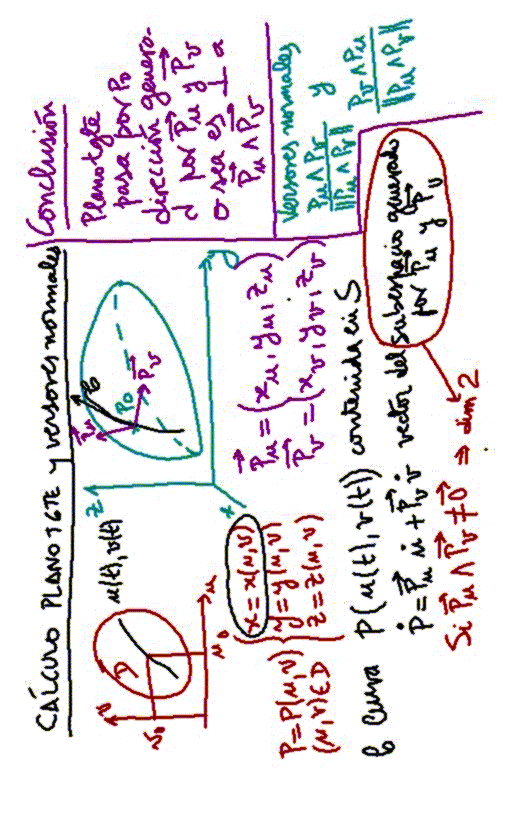 CÁLCULO PLANO TGTE y versores normales
v
v₀
D
u(t), v(t)
u₀
u
z
x
y
P₀
P⃗u
P⃗v
C
P = P(u,v)
(u,v) ∈ D
x = x(u,v)
y = y(u,v)
z = z(u,v)
P⃗u = (xu, yu, zu)
P⃗v = (xv, yv, zv)
C curva P(u(t), v(t)) contenida en S
Ṗ = P⃗u u̇ + P⃗v v̇ vector del subespacio generado
por P⃗u y P⃗v
Si P⃗u ∧ P⃗v ≠ 0⃗ ⇒ dim 2
Conclusión
Plano tgte
pasa por P₀
dirección genera-
d por P⃗u y P⃗v
o sea es ⊥ a
P⃗u ∧ P⃗v
Versores normales
Pu ∧ Pv / ‖Pu ∧ Pv‖ y Pv ∧ Pu / ‖Pu ∧ Pv‖